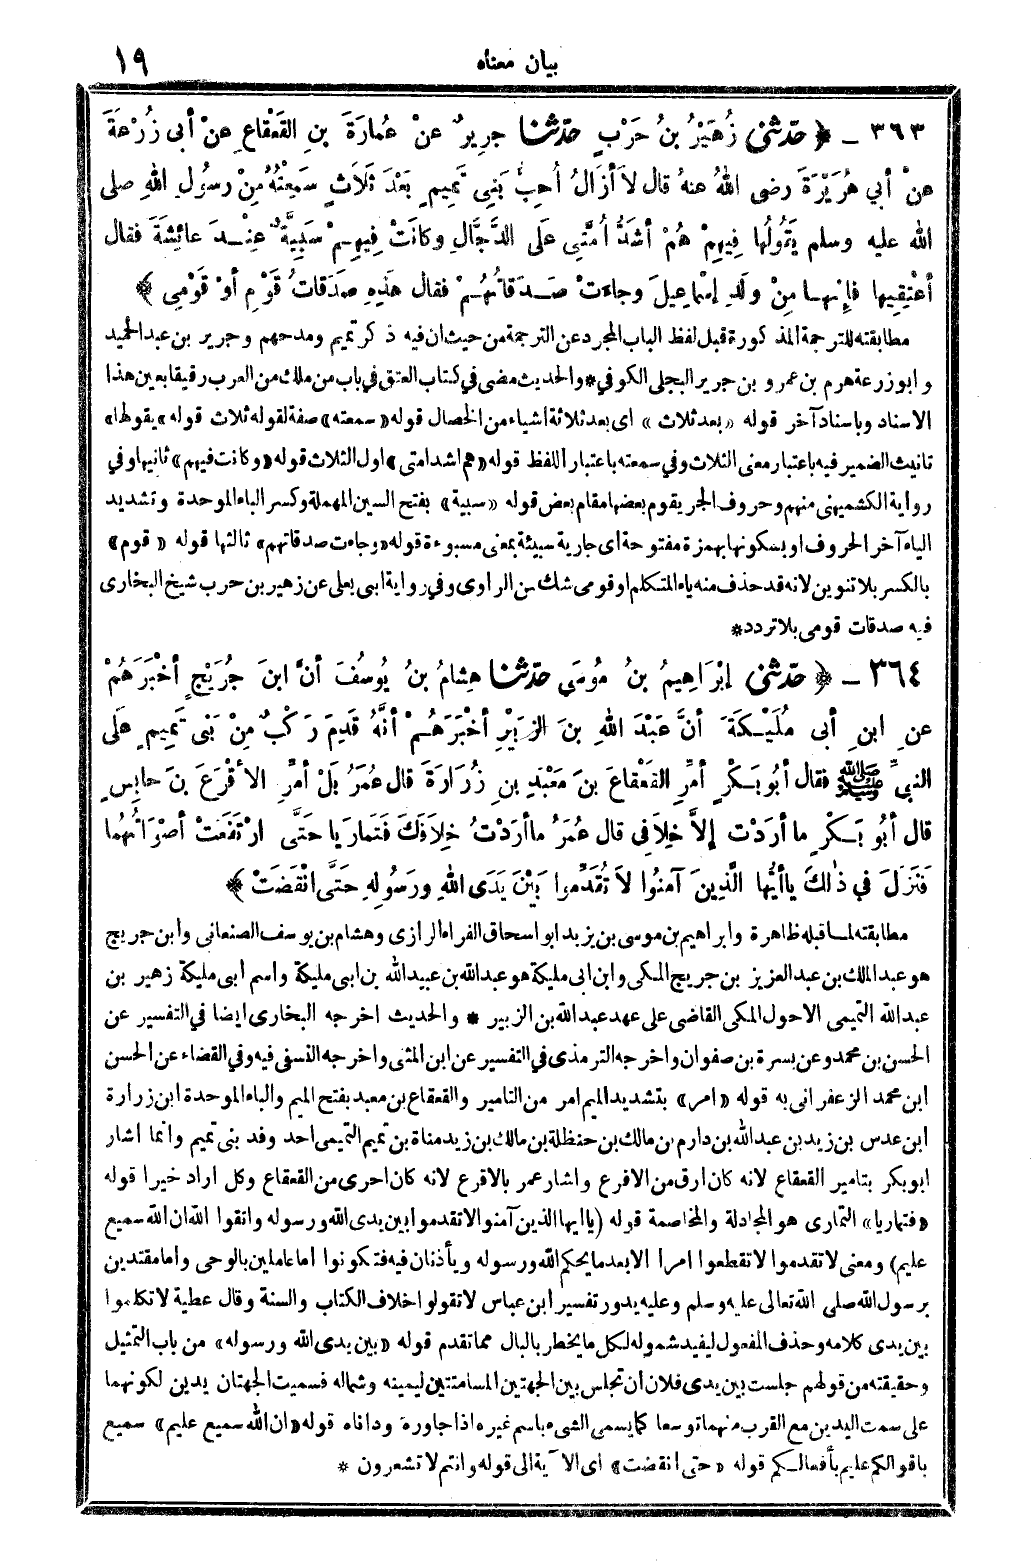 بيان معناه
١٩
٣٦٣ _ ﴿ حَدَّثَنِي زُهَيْرُ بنُ حَرْبٍ حَدَّثَنَا جرِيرٌ عنْ عُمارَةَ بنِ القَعْقاعِ عنْ أبي زُرْعَةَ
عنْ أبي هُرَيْرَةَ رضى اللهُ عنهُ قال لاَ أزَالُ أُحِبُّ بَنِي تَمِيمٍ بَعْدَ ثَلاَثٍ سَمِعْتُهُ مِنْ رسُولِ اللهِ صلى
الله عليه وسلم يَقُولُها فِيهِمْ هُمْ أشَدُّ أُمَّتِي عَلَى الدَّجَّالِ وكانَتْ فِيهِمْ سَبِيَّةٌ عِنْدَ عائِشَةَ فقال
أعْتِقِيها فإِنَّها مِنْ ولَدِ إسْماعِيلَ وجاءَتْ صَدَقاتُهُمْ فقال هَذِهِ صَدَقاتُ قَوْمٍ أوْ قَوْمِي ﴾
مطابقته للترجمة المذكورة قبل لفظ الباب المجرد عن الترجمة من حيث ان فيه ذكر تميم ومدحهم وجرير بن عبد الحميد
وابو زرعة هرم بن عمرو بن جرير البجلى الكوفي * والحديث مضى في كتاب العتق في باب من ملك من العرب رقيقا بعين هذا
الاسناد وباسناد آخر قوله «بعد ثلاث» اى بعد ثلاثة اشياء من الخصال قوله «سمعته» صفة لقوله ثلاث قوله «يقولها»
تانيث الضمير فيه باعتبار معنى الثلاث وفي سمعته باعتبار اللفظ قوله «هم اشد امتى» اول الثلاث قوله «وكانت فيهم» ثانيها وفي
رواية الكشميهنى منهم وحروف الجر يقوم بعضها مقام بعض قوله «سبية» بفتح السين المهملة وكسر الباء الموحدة وتشديد
الياء آخر الحروف او بسكونها بهمزة مفتوحة اى جارية سبيئة بمعنى مسبوءة قوله «وجاءت صدقاتهم» ثالثها قوله «قوم»
بالكسر بلا تنوين لانه قد حذف منه ياء المتكلم او قومى شك من الراوى وفي رواية ابى يعلى عن زهير بن حرب شيخ البخارى
فيه صدقات قومى بلا تردد *
٣٦٤ _ ﴿ حَدَّثَنِي إبْرَاهِيمُ بنُ مُوسَى حَدَّثَنَا هِشامُ بنُ يُوسُفَ أنَّ ابنَ جُرَيْجٍ أخْبَرَهُمْ
عنِ ابنِ أبى مُلَيْكَةَ أنَّ عَبْدَ اللهِ بنَ الزُّبَيْرِ أخْبَرَهُمْ أنَّهُ قَدِمَ رَكْبٌ مِنْ بَنِي تَمِيمٍ عَلَى
النبيِّ ﷺ فقال أبُو بَكْرٍ أمِّرِ القَعْقاعَ بنَ مَعْبَدِ بنِ زُرَارَةَ قال عُمَرُ بَلْ أمِّرِ الأقْرَعَ بنَ حابِسٍ
قال أبُو بَكْرٍ ما أرَدْتَ إلاَّ خِلاَفِي قال عُمَرُ ما أرَدْتُ خِلاَفَكَ فَتَمارَيا حَتَّى ارْتَفَعَتْ أصْوَاتُهُما
فَنَزَلَ في ذٰلِكَ ياأيُّها الَّذِينَ آمَنُوا لاَ تُقَدِّمُوا بَيْنَ يَدَىِ اللهِ ورَسُولِهِ حَتَّى انْقَضَتْ ﴾
مطابقته لما قبله ظاهرة وابراهيم بن موسى بن يزيد ابو اسحاق الفراء الرازى وهشام بن يوسف الصنعانى وابن جريج
هو عبد الملك بن عبد العزيز بن جريج المكى وابن ابى مليكة هو عبدالله بن عبيد الله بن ابى مليكة واسم ابى مليكة زهير بن
عبدالله التميمى الاحول المكى القاضى على عهد عبدالله بن الزبير * والحديث اخرجه البخارى ايضا في التفسير عن
الحسن بن محمد وعن بسرة بن صفوان واخرجه الترمذى في التفسير عن ابن المثنى واخرجه النسفى فيه وفي القضاء عن الحسن
ابن محمد الزعفرانى به قوله «امر» بتشديد الميم امر من التامير والقعقاع بن معبد بفتح الميم والباء الموحدة ابن زرارة
ابن عدس بن زيد بن عبدالله بن دارم بن مالك بن حنظلة بن مالك بن زيد مناة بن تميم التميمى احد وفد بنى تميم وانما اشار
ابو بكر بتامير القعقاع لانه كان ارق من الاقرع واشار عمر بالاقرع لانه كان احرى من القعقاع وكل اراد خيرا قوله
«فتماريا» التمارى هو المجادلة والمخاصمة قوله (ياايها الذين آمنوا لا تقدموا بين يدى الله ورسوله واتقوا الله ان الله سميع
عليم) ومعنى لا تقدموا لا تقطعوا امرا الا بعد ما يحكم الله ورسوله ويأذنان فيه فتكونوا اما عاملين بالوحى واما مقتدين
برسول الله صلى الله تعالى عليه وسلم وعليه يدور تفسير ابن عباس لا تقولوا خلاف الكتاب والسنة وقال عطية لا تكلموا
بين يدى كلامه وحذف المفعول ليفيد شموله لكل ما يخطر بالبال مما تقدم قوله «بين يدى الله ورسوله» من باب التمثيل
وحقيقته من قولهم جلست بين يدى فلان أن تجلس بين الجهتين المسامتتين ليمينه وشماله فسميت الجهتان يدين لكونهما
على سمت اليدين مع القرب منهما توسعا كما يسمى الشىء باسم غيره اذا جاوره وداناه قوله «ان الله سميع عليم» سميع
باقوالكم عليم بأفعالكم قوله «حتى انقضت» اى الآية الى قوله وانتم لا تشعرون *